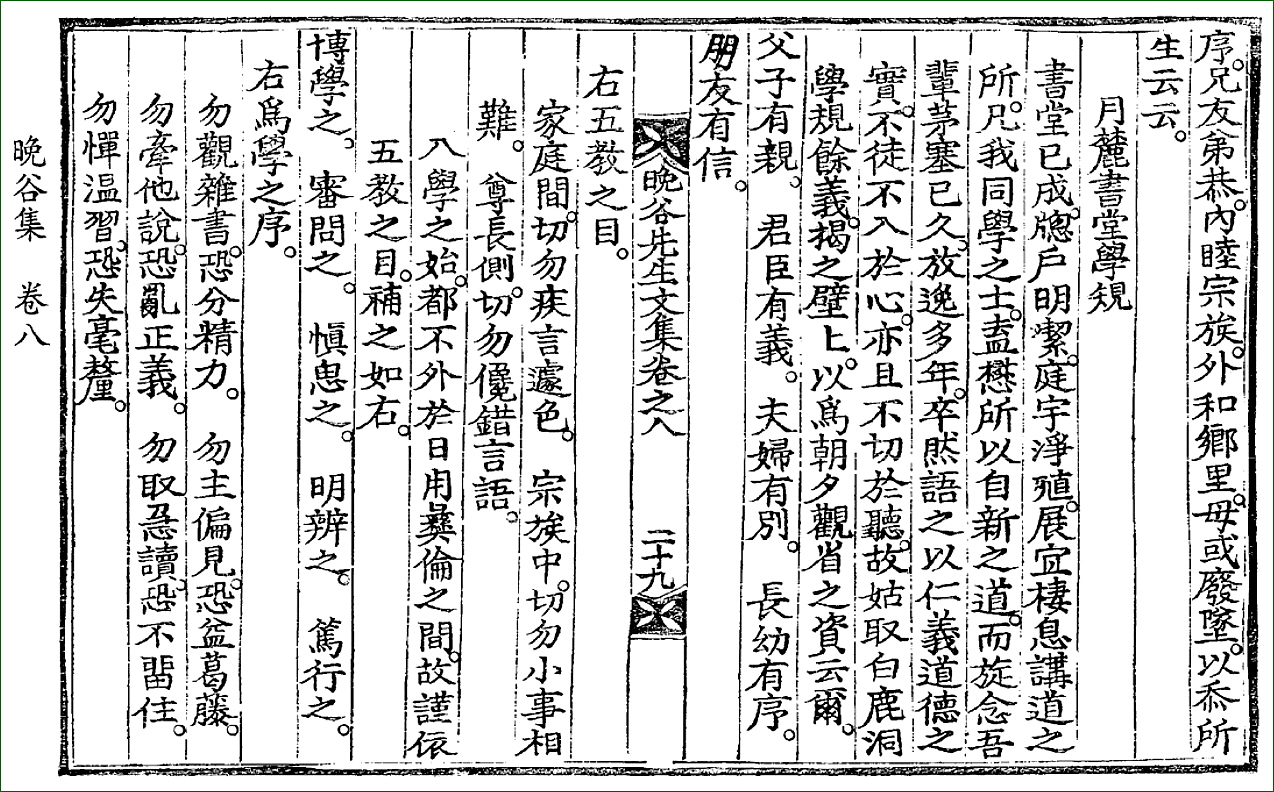 序。兄友弟恭。內睦宗族。外和鄕里。毋或廢墜。以忝所
生云云。
月麓書堂學規
書堂已成。牕戶明潔。庭宇淨殖。展宜棲息講道之
所。凡我同學之士。盍懋所以自新之道。而旋念吾
輩茅塞已久。放逸多年。卒然語之以仁義道德之
實。不徒不入於心。亦且不切於聽。故姑取白鹿洞
學規餘義。揭之壁上。以爲朝夕觀省之資云爾。
父子有親。 君臣有義。 夫婦有別。 長幼有序。
朋友有信。
晩谷先生文集卷之八 二十九
右五敎之目。
家庭間。切勿疾言遽色。 宗族中。切勿小事相
難。 尊長側。切勿儳錯言語。
入學之始。都不外於日用彝倫之間。故謹依
五敎之目。補之如右。
博學之。 審問之。 愼思之。 明辨之。 篤行之。
右爲學之序。
勿觀雜書。恐分精力。 勿主偏見。恐益葛藤。
勿牽他說。恐亂正義。 勿取急讀。恐不留住。
勿憚溫習。恐失毫釐。
晩谷集 卷八